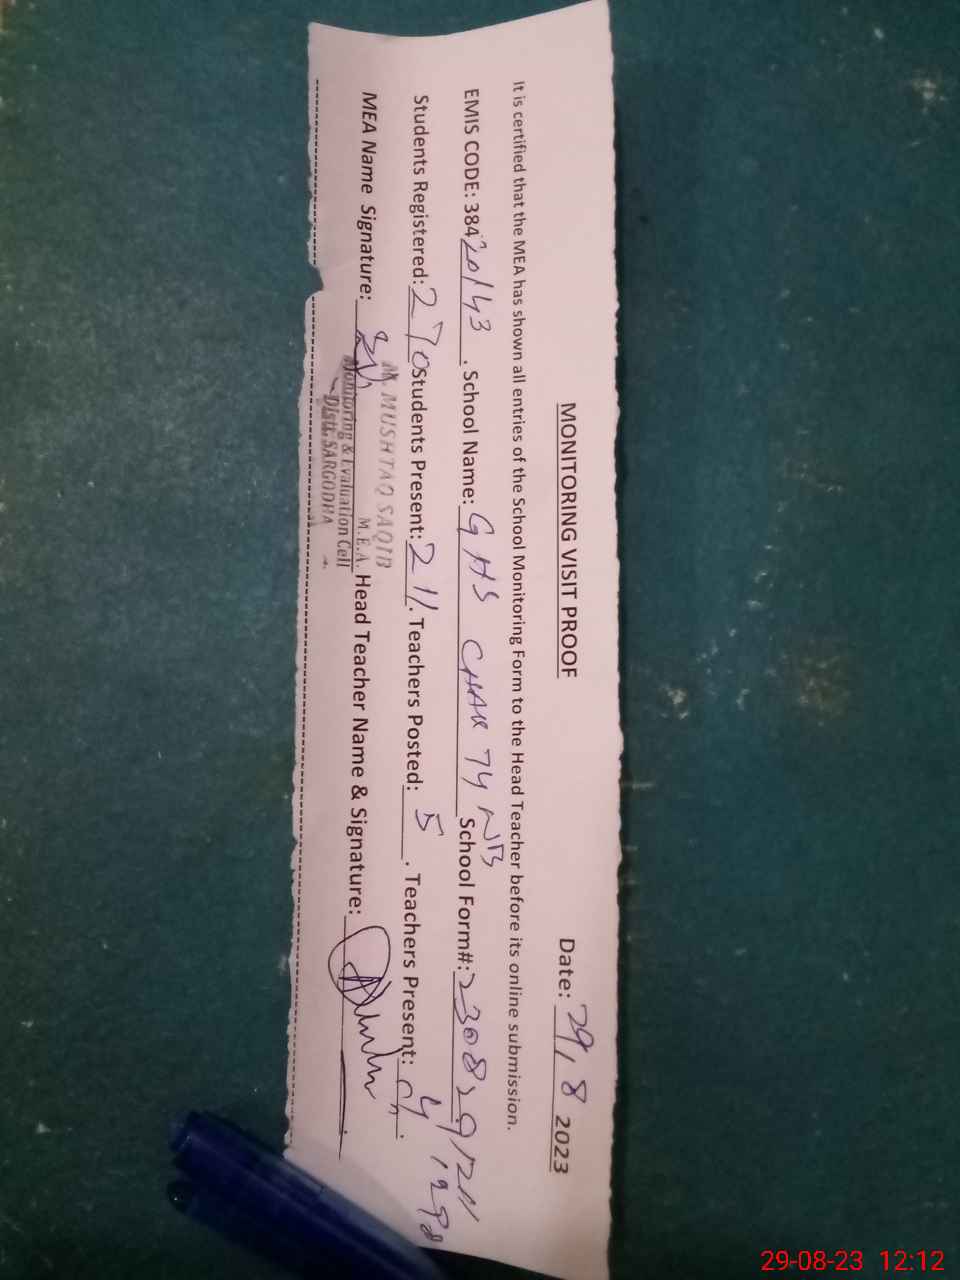 MONITORING VISIT PROOF Date: 29, 8 2023
It is certified that the MEA has shown all entries of the School Monitoring Form to the Head Teacher before its online submission.
EMIS CODE: 38420143 . School Name: GHS CHAK 74 NB School Form#:
Students Registered: 270 Students Present: 211. Teachers Posted: 5 . Teachers Present:
M. MUSHTAQ SAQIB
M.E.A.
MEA Name Signature: Head Teacher Name & Signature:
Monitoring & Evaluation Cell
Distt. SARGODHA
29-08-23 12:12